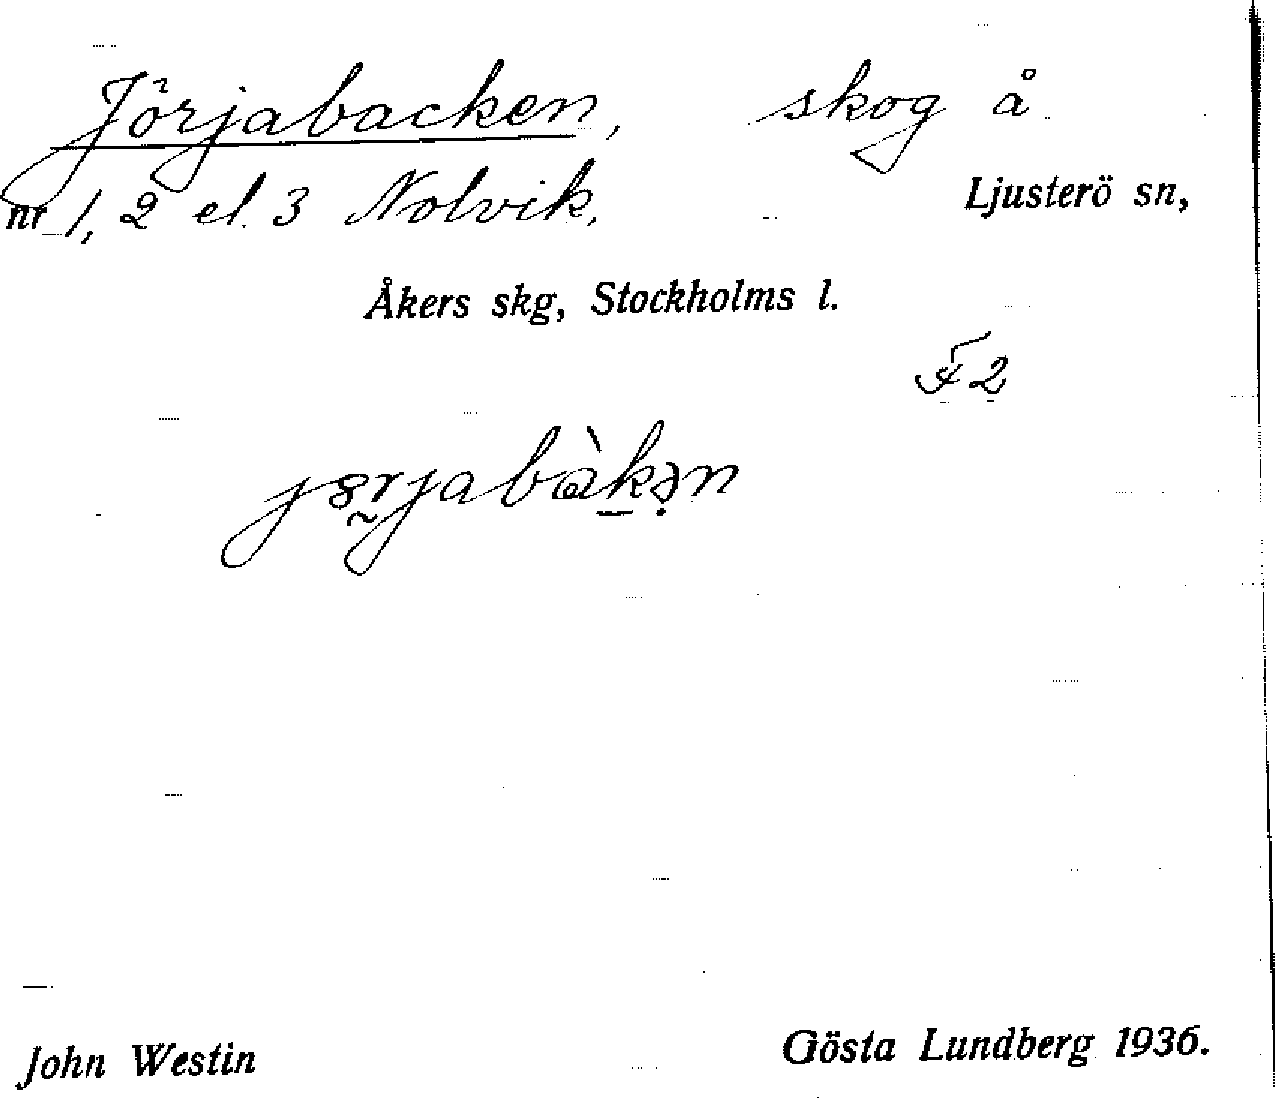 Jörjabacken, skog å
nr 1, 2 el. 3 Nolvik, Ljusterö sn,
Åkers skg, Stockholms l.
F2
John Westin Gösta Lundberg 1936.